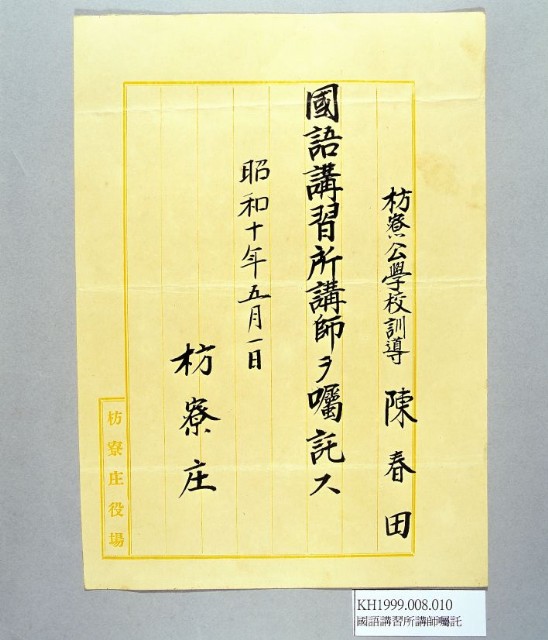 枋寮公學校訓導 陳春田
國語講習所講師ヲ囑託ス
昭和十年五月一日
枋寮庄
枋寮庄役場
KH1999.008.010
國語講習所講師囑託